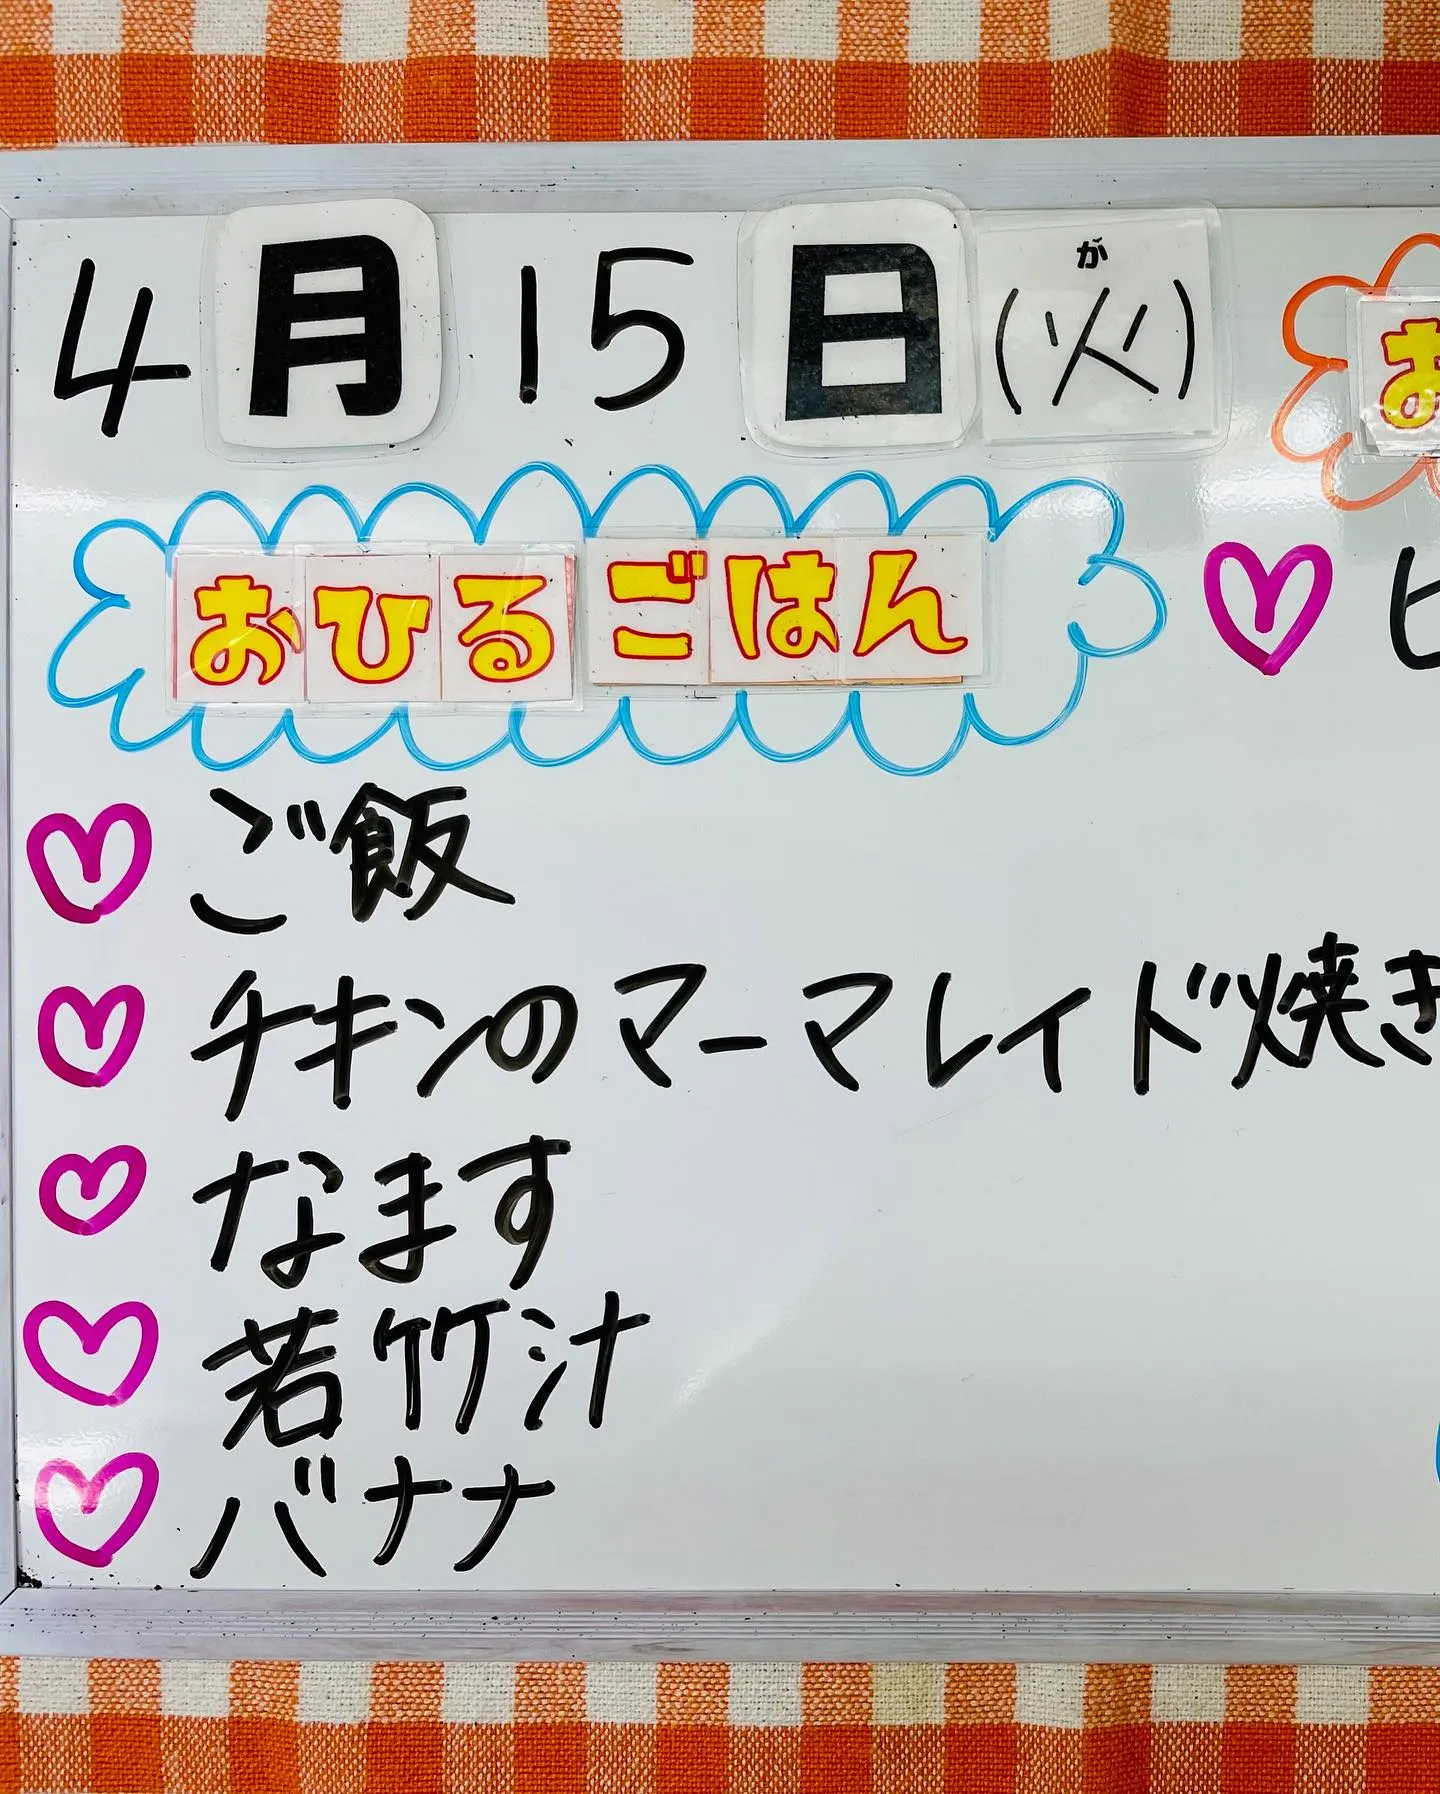 4月15日(火)
が
おひるごはん
ご飯
チキンのマーマレイド焼き
なます
若竹汁
バナナ
お